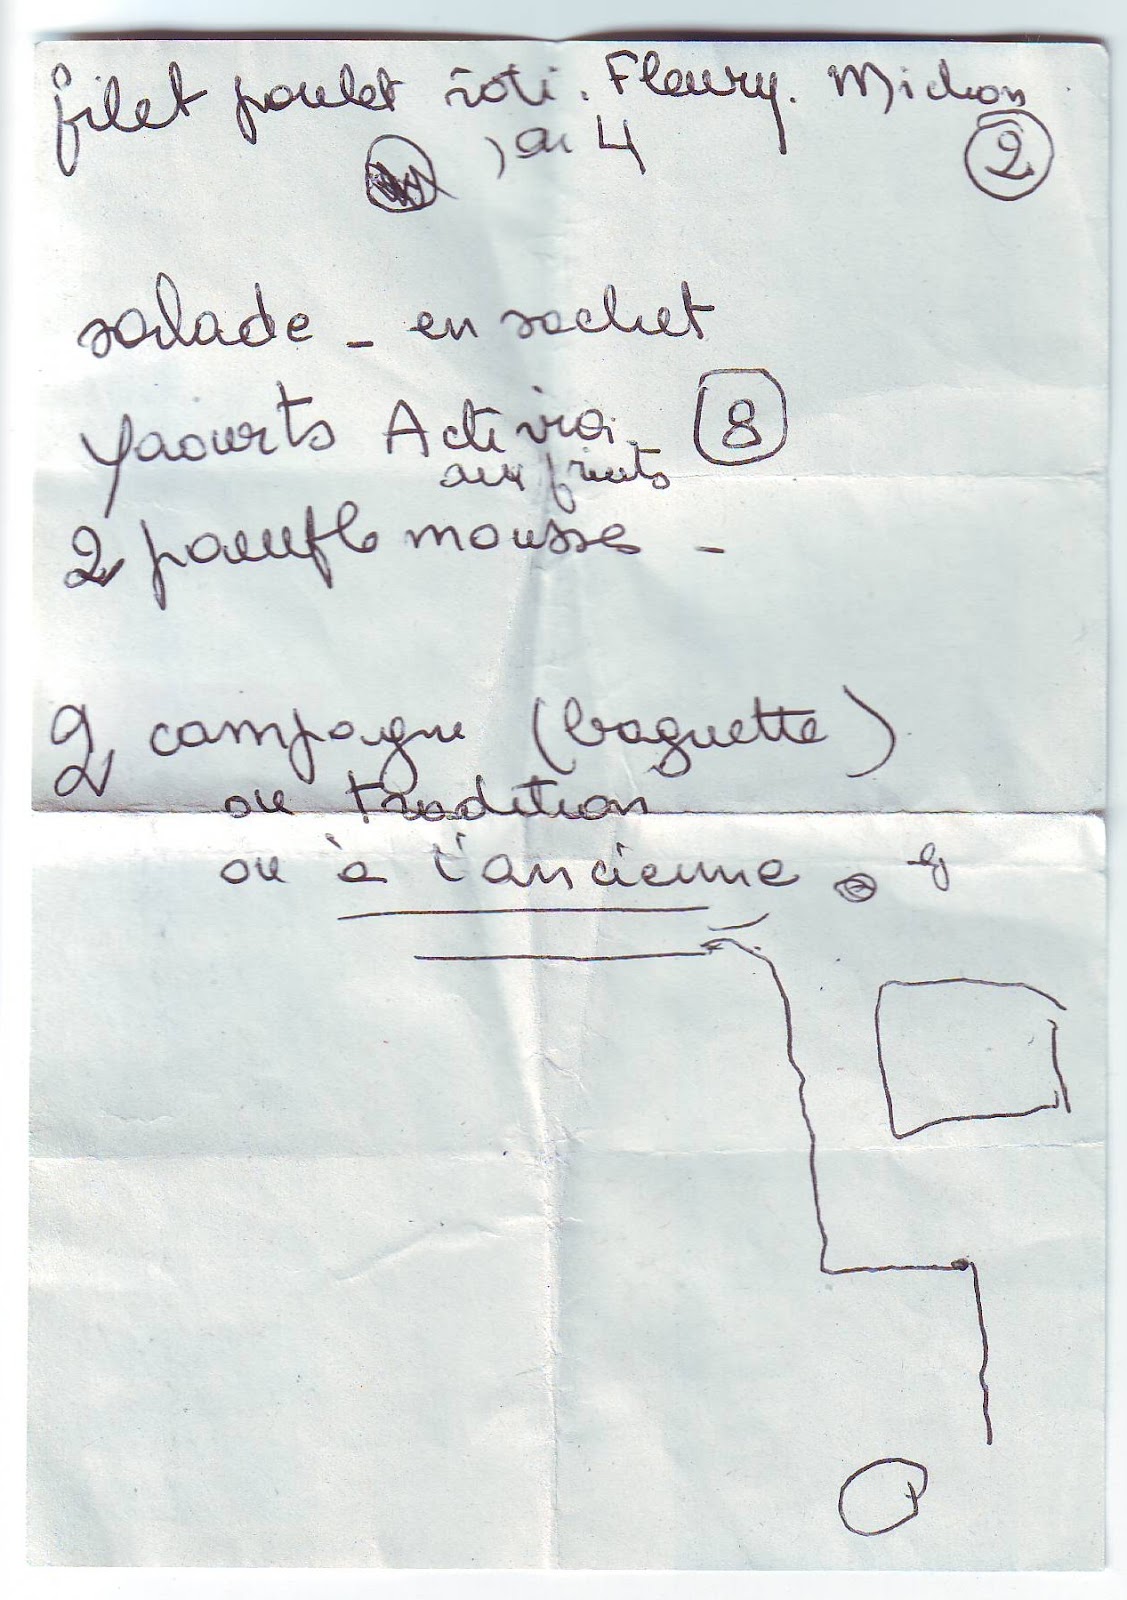 filet poulet rôti. Fleury. Michon
, ou 4 2
salade - en sachet
Yaourts Activia 8
aux fruits
2 mousses -
2 campagne (baguette)
ou tradition
ou à l'ancienne